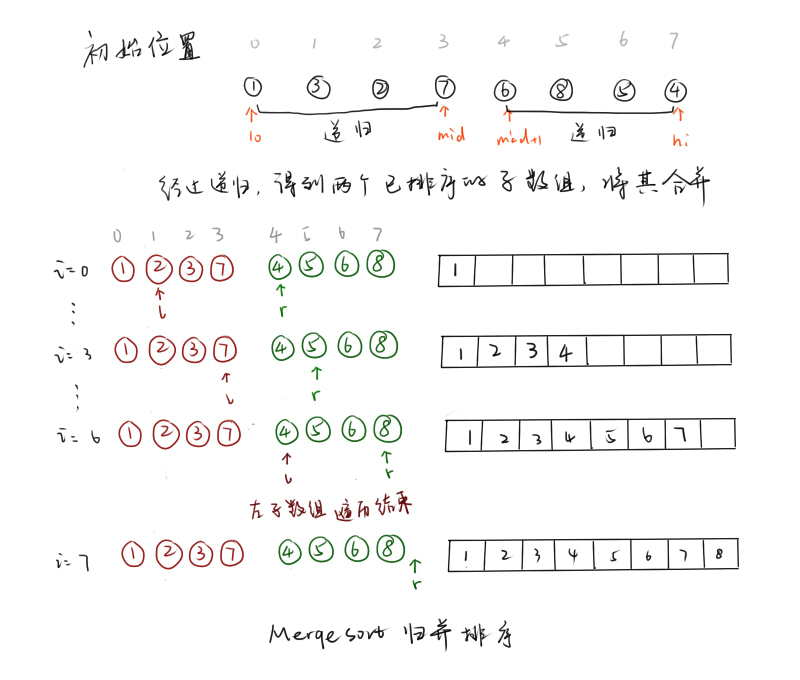 初始位置 0 1 2 3 4 5 6 7
1 3 2 7 6 8 5 4
lo 递归 mid mid+1 递归 hi
经过递归，得到两个已排序的子数组，将其合并
0 1 2 3 4 5 6 7
i=0 1 2 3 7 4 5 6 8 1
l r
⋮
i=3 1 2 3 7 4 5 6 8 1 2 3 4
l r
⋮
i=6 1 2 3 7 4 5 6 8 1 2 3 4 5 6 7
l r
左子数组遍历结束
i=7 1 2 3 7 4 5 6 8 1 2 3 4 5 6 7 8
r
Mergesort 归并排序